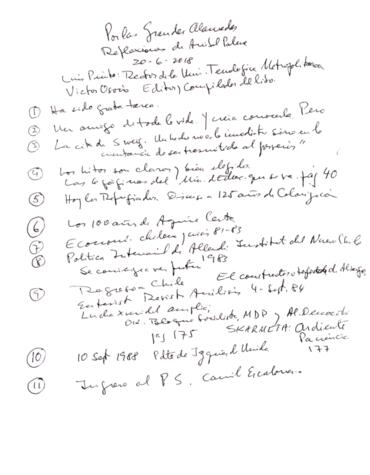 Por las Grandes Alamedas
Reflexiones de Aníbal Palma
20-6-2018
Luis Pinto: Rector de la Univ. Tecnológica Metropolitana
Victor Osorio Editor y Compilador del libro.
① Ha sido grata tarea.
② Un amigo de toda la vida. Y creía conocerlo. Pero
③ La cita de Sweig. Un lo inmediato sino en lo
de ser transmitido al porvenir"
④ Los hitos son claros y bien elegidos
Las 6 páginas del Min. de Educ. que se va. pág 40
⑤ Hoy los Refugiados. Discurso 125 años de Colonización
⑥ Los 100 años de Aguirre Cerda
⑦ Economía chilena y crisis 81-83
⑧ Política Internacil de Allende Institut del Nuevo Chile
Se conversaba futuro 1983
⑨ Regreso a Chile El constructor
Entrevist Revista Análisis 4-Sept. 84
Lucha x un del amplia,
Bloque Socialista, MDP y Al. Democrát
pág 175 SKARMETA: Ardiente
Paciencia
177
⑩ 10 Sept 1988 Pdte de Izquierda Unida
⑪ Ingreso al P S. Camil Escalona.